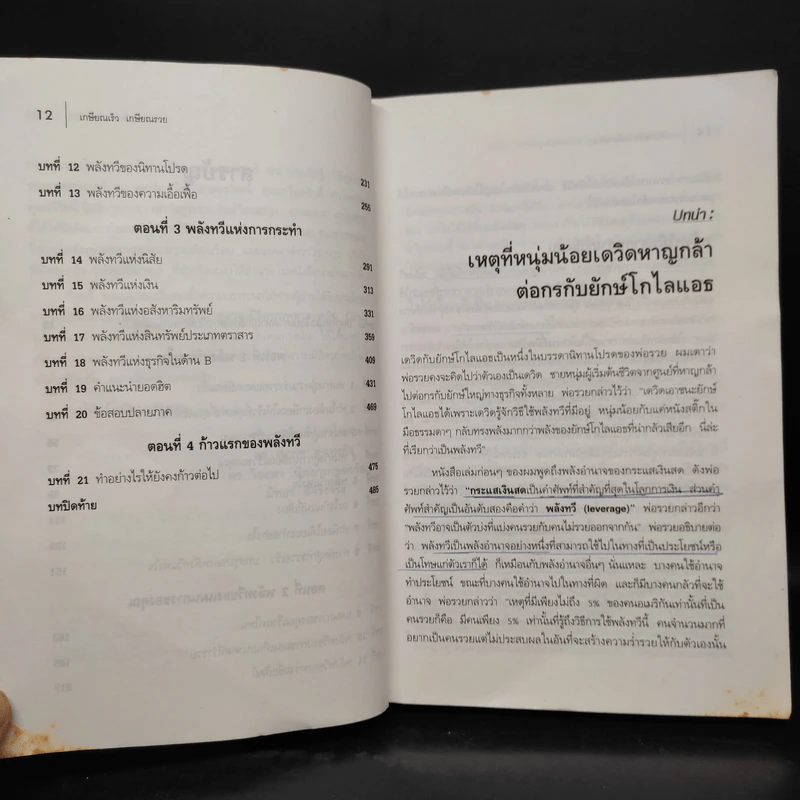 12 | เกษียณเร็ว เกษียณรวย
บทที่ 12 พลังทวีของนิทานโปรด 231
บทที่ 13 พลังทวีของความเอื้อเฟื้อ 255
ตอนที่ 3 พลังทวีแห่งการกระทำ
บทที่ 14 พลังทวีแห่งนิสัย 291
บทที่ 15 พลังทวีแห่งเงิน 313
บทที่ 16 พลังทวีแห่งอสังหาริมทรัพย์ 331
บทที่ 17 พลังทวีแห่งสินทรัพย์ประเภทตราสาร 359
บทที่ 18 พลังทวีแห่งธุรกิจในด้าน B 409
บทที่ 19 คำแนะนำยอดฮิต 431
บทที่ 20 ข้อสอบปลายภาค 469
ตอนที่ 4 ก้าวแรกของพลังทวี
บทที่ 21 ทำอย่างไรให้ยังคงก้าวต่อไป 475
บทปิดท้าย 485
บทนำ :
เหตุที่หนุ่มน้อยเดวิดหาญกล้า
ต่อกรกับยักษ์โกไลแอธ
เดวิดกับยักษ์โกไลแอธเป็นหนึ่งในบรรดานิทานโปรดของพ่อรวย ผมเดาว่า
พ่อรวยคงจะคิดไปว่าตัวเองเป็นเดวิด ชายหนุ่มผู้เริ่มต้นชีวิตจากศูนย์ที่หาญกล้า
ไปต่อกรกับยักษ์ใหญ่ทางธุรกิจทั้งหลาย พ่อรวยกล่าวไว้ว่า "เดวิดเอาชนะยักษ์
โกไลแอธได้เพราะเดวิดรู้จักวิธีใช้พลังทวีที่มีอยู่ หนุ่มน้อยกับแค่หนังสติ๊กใน
มือธรรมดาๆ กลับทรงพลังมากกว่าพลังของยักษ์โกไลแอธที่น่ากลัวเสียอีก นี่ล่ะ
ที่เรียกว่าเป็นพลังทวี"
หนังสือเล่มก่อนๆ ของผมพูดถึงพลังอำนาจของกระแสเงินสด ดังพ่อ
รวยกล่าวไว้ว่า "กระแสเงินสดเป็นคำศัพท์ที่สำคัญที่สุดในโลกการเงิน ส่วนคำ
ศัพท์สำคัญเป็นอันดับสองคือคำว่า พลังทวี (leverage)" พ่อรวยกล่าวอีกว่า
"พลังทวีอาจเป็นตัวบ่งที่แบ่งคนรวยกับคนไม่รวยออกจากกัน" พ่อรวยอธิบายต่อ
ว่า พลังทวีเป็นพลังอำนาจอย่างหนึ่งที่สามารถใช้ไปในทางที่เป็นประโยชน์หรือ
เป็นโทษแก่ตัวเราก็ได้ ก็เหมือนกับพลังอำนาจอื่นๆ นั่นแหละ บางคนใช้อำนาจ
ทำประโยชน์ ขณะที่บางคนใช้อำนาจไปในทางที่ผิด และก็มีบางคนกลัวที่จะใช้
อำนาจ พ่อรวยกล่าวว่า "เหตุที่มีเพียงไม่ถึง 5% ของคนอเมริกันเท่านั้นที่เป็น
คนรวยก็คือ มีคนเพียง 5% เท่านั้นที่รู้ถึงวิธีการใช้พลังทวีนี้ คนจำนวนมากที่
อยากเป็นคนรวยแต่ไม่ประสบผลในอันที่จะสร้างความร่ำรวยให้กับตัวเองนั้น